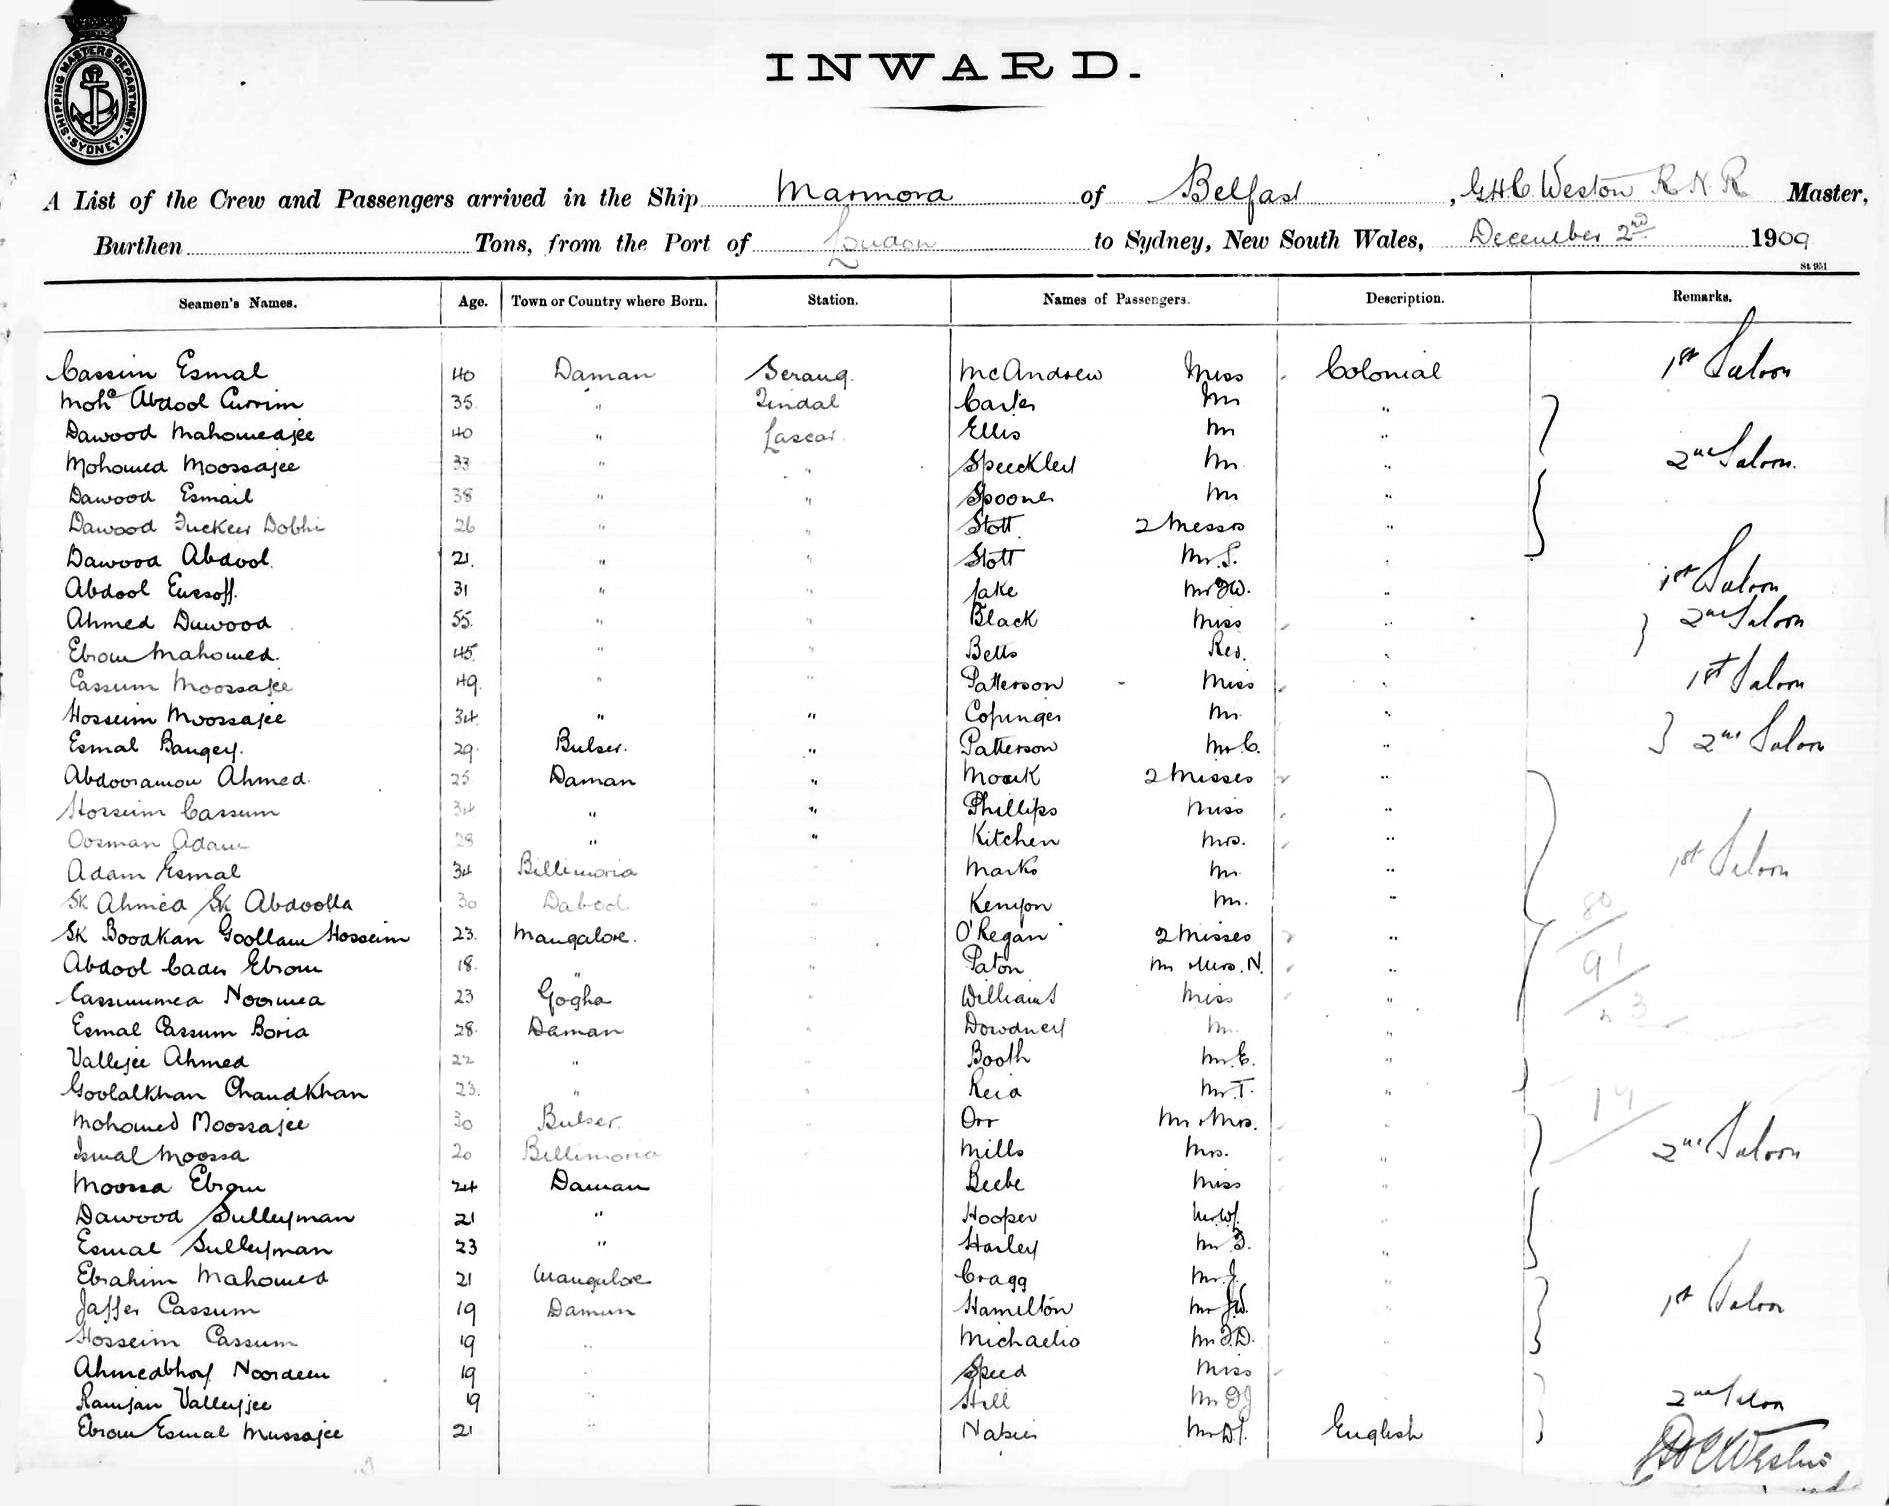 SHIPPING MASTERS DEPARTMENT · SYDNEY ·
INWARD.
A List of the Crew and Passengers arrived in the Ship Marmora of Belfast, G H C Weston R. N. R Master,
Burthen Tons, from the Port of London to Sydney, New South Wales, December 2nd 1909
St 951
Seamen's Names. Age. Town or Country where Born. Station. Names of Passengers. Description. Remarks.
Cassim Esmal 40 Daman Serang. McAndrew Miss Colonial 1st Saloon
Mohd Abdool Currim 35 " Tindal Carter Mr "
Dawood Mahomedjee 40 " Lascar Ellis Mr "
Mohomed Moossajee 33 " " Speckley Mr " 2nd Saloon.
Dawood Esmail 38 " " Spooner Mr "
Dawood Tuckeer Dobhi 26 " " Stott 2 Messrs "
Dawood Abdool 21. " " Stott Mr. S. "
Abdool Eussoff. 31 " " Jake Mr F W. " 1st Saloon
Ahmed Dawood 55. " " Black Miss " 2nd Saloon
Ebrow Mahomed. 45 " " Betts Rev. "
Cassum Moossajee 49 " " Patterson - Miss " 1st Saloon
Hosseim Moossajee 34 " " Copinger Mr "
Esmal Bangey. 29. Bulser. " Patterson Mr C. " 2nd Saloon
Abdooramon Ahmed. 25 Daman " Moark 2 Misses "
Hosseim Cassum 34 " " Phillips Miss "
Oosman Adam 28 " " Kitchen Mrs. "
Adam Esmal 34 Billimoria " Marks Mr " 1st Saloon
Sk Ahmed Sk Abdoolla 30 Dabool " Kenyon Mr. " 80
Sk Boodkan Goollam Hosseim 23. Mangalore. " O'Regan 2 Misses "
Abdool Cader Ebrow 18. " " Paton Mr & Mrs. N. " 91
Cassummea Noormea 23 Gogha " Williams Miss " 23
Esmal Cassum Boria 28. Daman " Dowdney Mr "
Vallejee Ahmed 22 " " Booth Mr. E. "
Goolalkhan Chandkhan 23. " " Reid Mr. T. "
Mohomed Moossajee 30 Bulser. " Orr Mr & Mrs. " 14
Ismal Moossa 20 Billimoria " Mills Mrs. " 2nd Saloon
Moossa Ebrow 24 Daman Beebe Miss "
Dawood Sulleyman 21 " Hooper Mr. W. "
Esmal Sulleyman 23 " Harley Mr F. "
Ebrahim Mahomed 21 Mangalore Cragg Mr. J. "
Jaffer Cassum 19 Daman Hamilton Mr J W. " 1st Saloon
Hosseim Cassum 19 " Michaelis Mr F. D. "
Ahmedbhoy Noordeen 19 " Speed Miss
Ramjan Valleyjee 19 " Still Mr D J 2nd Saloon
Ebrow Esmal Mussajee 21 " Napier Mr D. English
G H C Weston